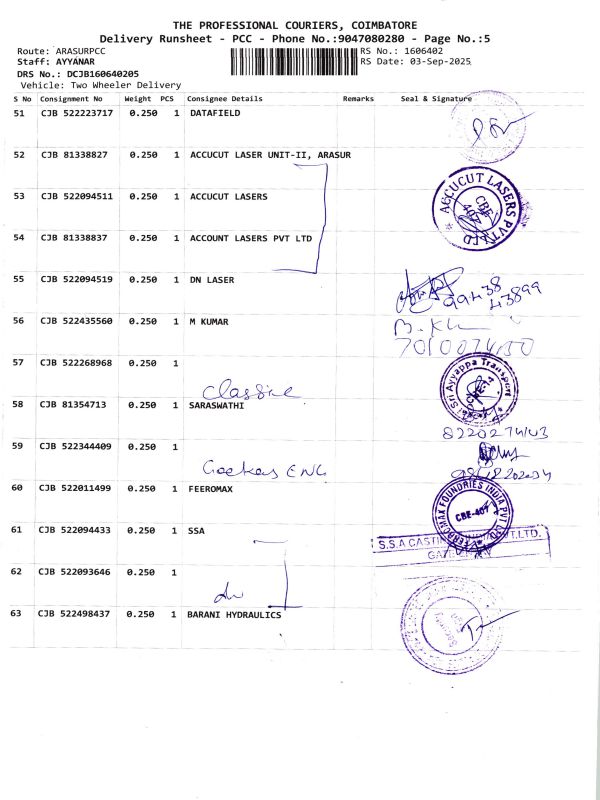 THE PROFESSIONAL COURIERS, COIMBATORE
Delivery Runsheet - PCC - Phone No.:9047080280 - Page No.:5
Route: ARASURPCC RS No.: 1606402
Staff: AYYANAR RS Date: 03-Sep-2025
DRS No.: DCJB160640205
Vehicle: Two Wheeler Delivery
S No Consignment No Weight PCS Consignee Details Remarks Seal & Signature
51 CJB 522223717 0.250 1 DATAFIELD
52 CJB 81338827 0.250 1 ACCUCUT LASER UNIT-II, ARASUR
53 CJB 522094511 0.250 1 ACCUCUT LASERS
ACCUCUT LASERS PVT LTD
CBE
407
54 CJB 81338837 0.250 1 ACCOUNT LASERS PVT LTD
55 CJB 522094519 0.250 1 DN LASER
99438
43899
56 CJB 522435560 0.250 1 M KUMAR
57 CJB 522268968 0.250 1
Classic
Sri Ayyappa Transport
58 CJB 81354713 0.250 1 SARASWATHI
59 CJB 522344409 0.250 1
ENG
60 CJB 522011499 0.250 1 FEEROMAX
FOUNDRIES INDIA PVT LTD
CBE-407
61 CJB 522094433 0.250 1 SSA
S.S.A CASTING PVT.LTD.
62 CJB 522093646 0.250 1
63 CJB 522498437 0.250 1 BARANI HYDRAULICS